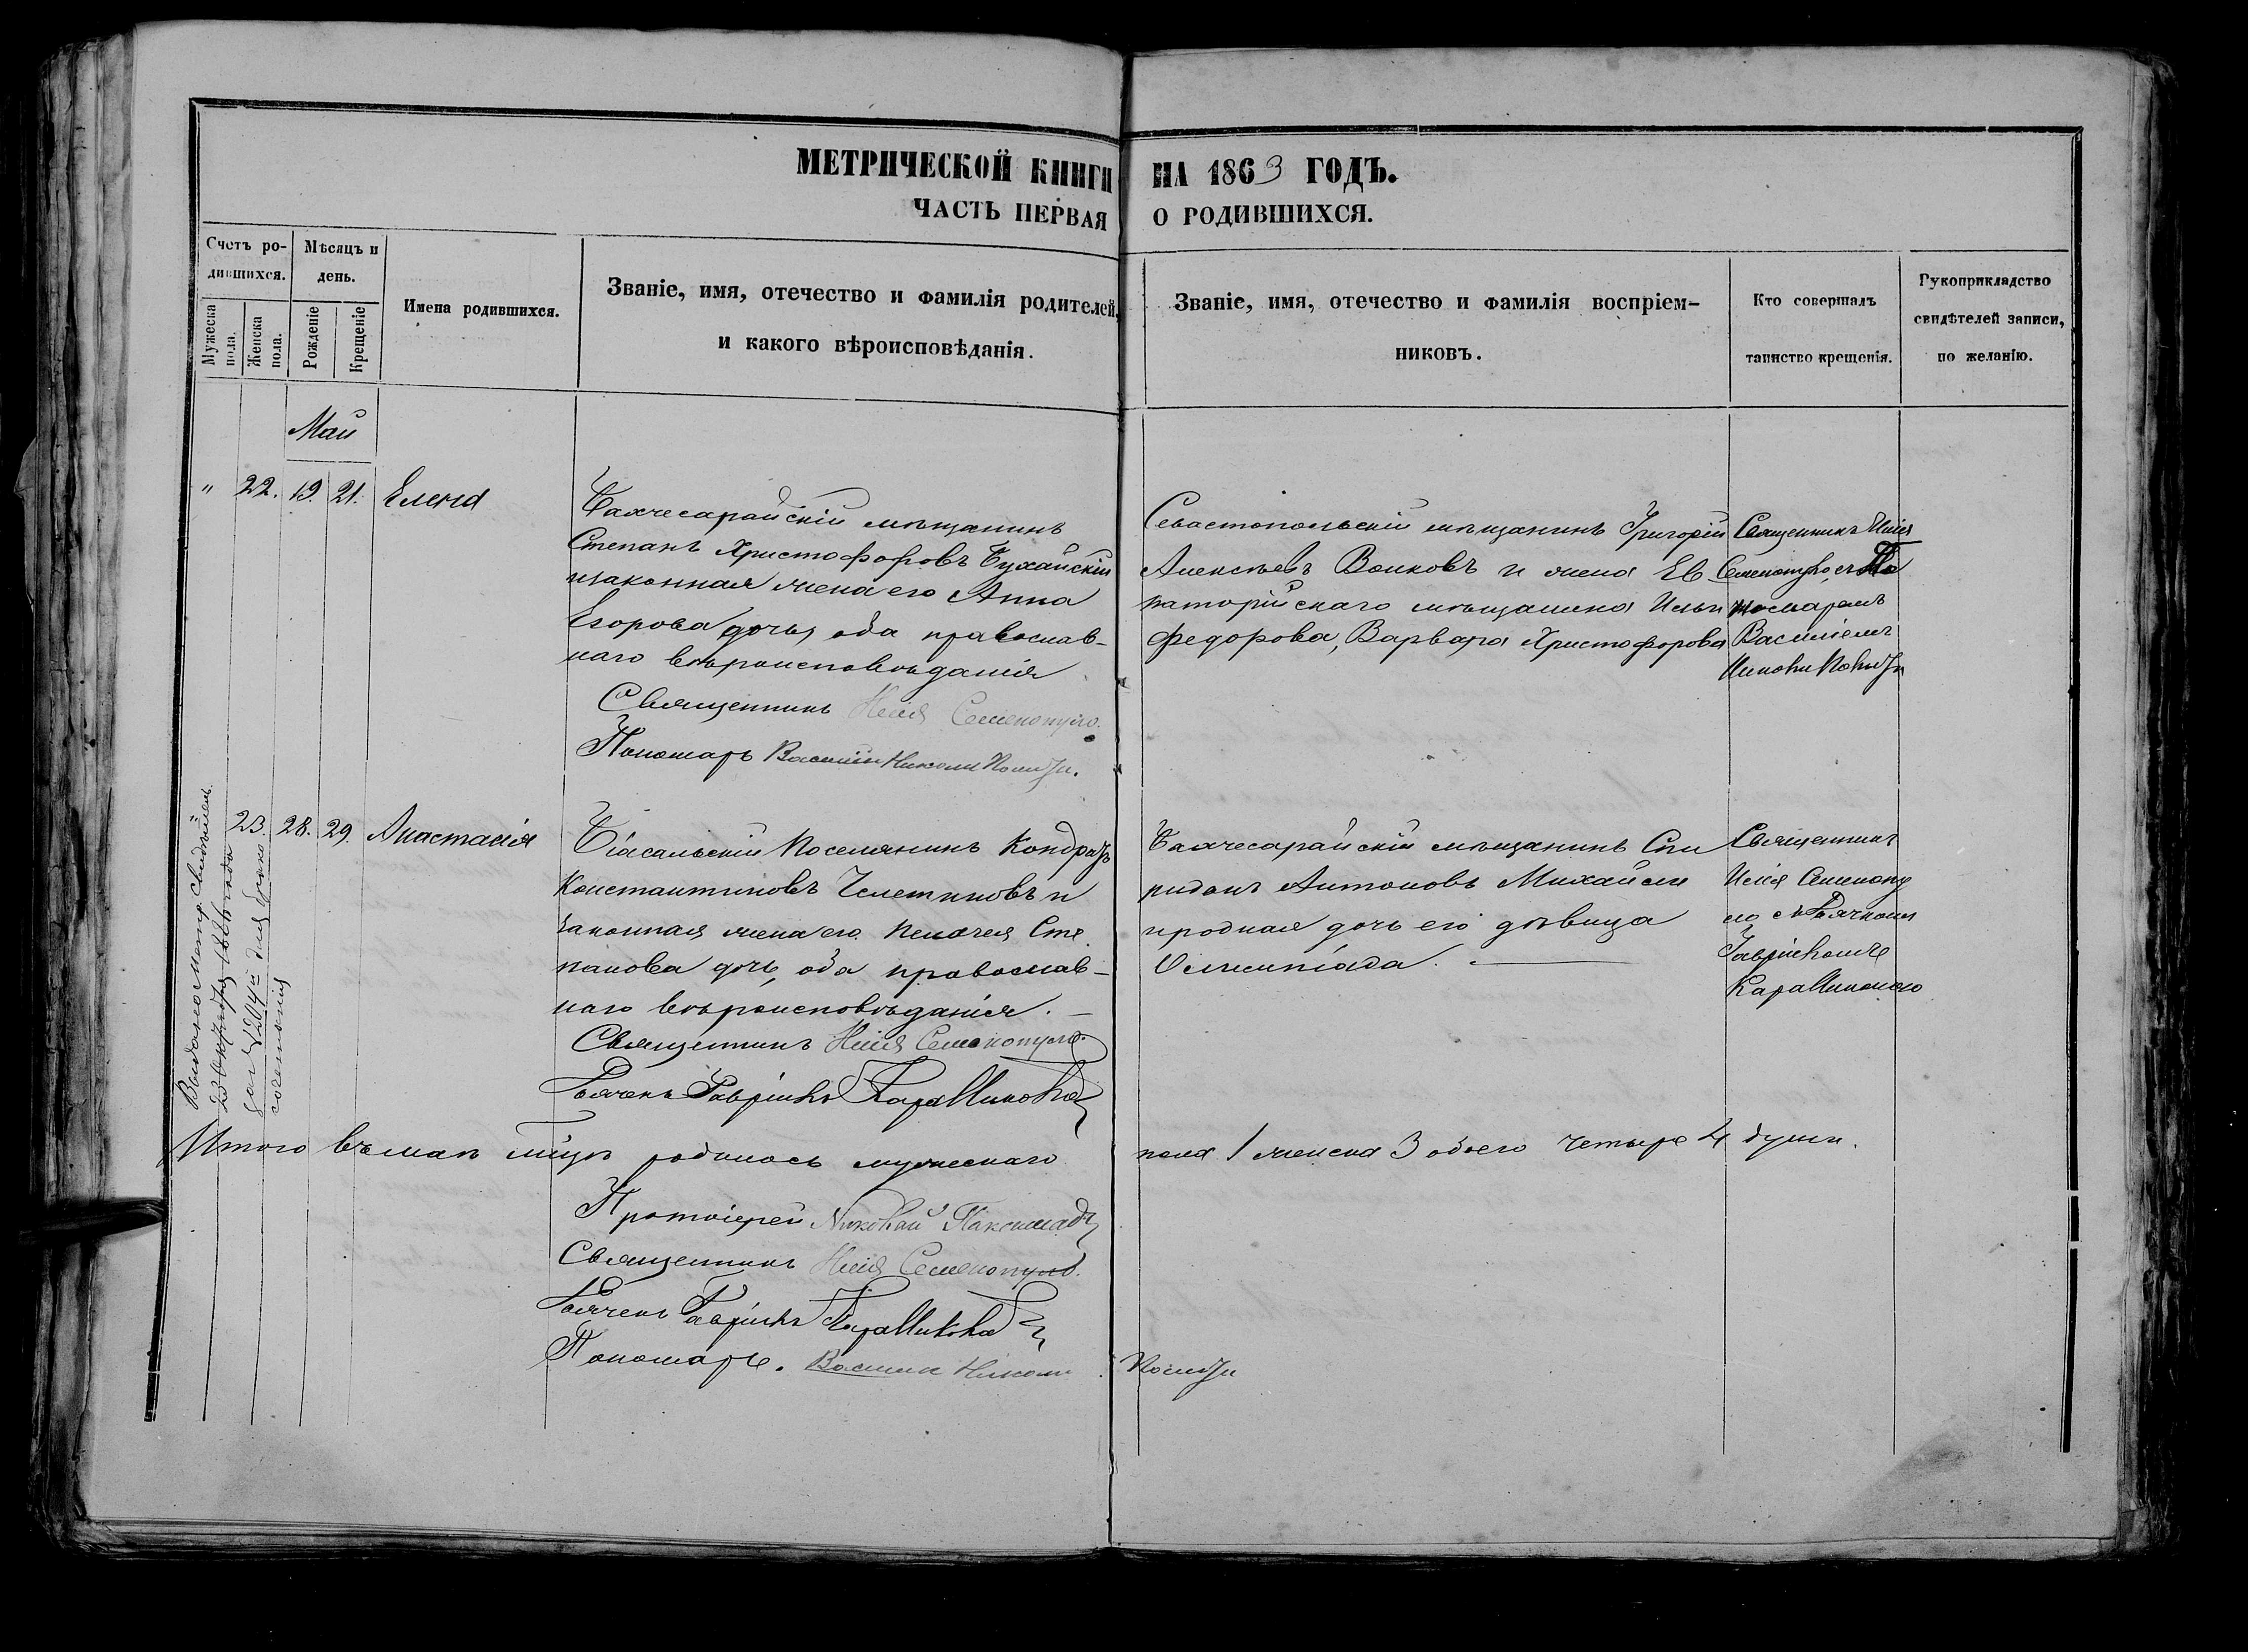 МЕТРИЧЕСКОЙ КНИГИ НА 1863 ГОДЪ.
ЧАСТЬ ПЕРВАЯ О РОДИВШИХСЯ.
Счетъ ро-
дившихся.
Мужеска пола.
Женска пола.
Мѣсяцъ и
день.
Рожденіе
Крещеніе
Имена родившихся.
Званіе, имя, отечество и фамилія родителей,
и какого вѣроисповѣданія.
Званіе, имя, отечество и фамилія воспріем-
никовъ.
Кто совершалъ
таинство крещенія.
Рукоприкладство
свидѣтелей записи,
по желанію.
Май
" 22. 19. 21. Елена
Бахчесарайскій мѣщанинъ
Степанъ Христофоровъ Бухайскій
изаконная жена его Анна
Егорова дочь, оба православ-
наго вѣроисповѣданія
Священникъ Илія Семенопуло.
Пономарь Василій Николи
Севастопольскій мѣщанинъ Григорій
Алексѣевъ Волковъ и жена Ев
паторійскаго мѣщанина Ильи
Федорова, Варвара Христофорова
Священникъ Илія
Семенопуло, съ По
номаремъ
Василіемъ
23. 28. 29. Анастасія
Біасальскій Поселянинъ Кондратъ
Константиновъ Челетиновъ и
законная жена его Пелагея Сте
панова дочь, оба православ-
наго вѣроисповѣданія. -
Священникъ Илія Семенопуло.
Дьячекъ Гавріилъ
Бахчесарайскій мѣщанинъ Спи
ридонъ Антоновъ Михайли
иродная дочь его дѣвица
Олимпіада.
Священникъ
Илія Семенопу
ло съ Дьячкомъ
Гавріиломъ
Выдано Метр. Свидѣтель.
для брако
сочетанія
Итого въ маѣ мцѣ родилось мужескаго пола 1 женска 3 обоего четыре 4 души.
Протоіерей Николай
Священникъ Илія Семенопуло.
Дьячекъ Гавріилъ
Пономарь. Василій Николи